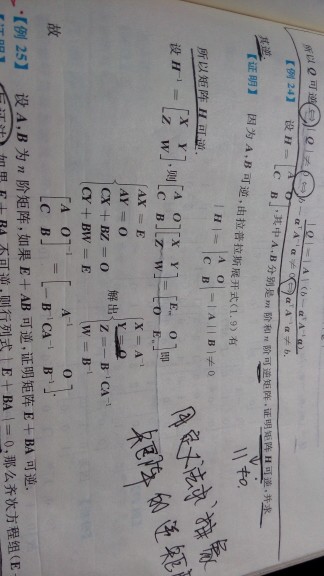 所以 Q 可逆⇔|Q|≠0⇔b-αᵀA⁻¹α≠0⇔αᵀA⁻¹α≠b.
【例 24】 设 H=[A O; C B],其中 A,B 分别是 m 阶和 n 阶可逆矩阵,证明矩阵 H 可逆,并求
其逆.
【证明】 因为 A,B 可逆,由拉普拉斯展开式(1.9)有
|H|=|A O; C B|=|A||B|≠0
所以矩阵 H 可逆.
设 H⁻¹=[X Y; Z W],则[A O; C B][X Y; Z W]=[Eₘ O; O Eₙ],即
{AX=E
AY=O
CX+BZ=O
CY+BW=E
解出
{X=A⁻¹
Y=O
Z=-B⁻¹CA⁻¹
W=B⁻¹
故
[A O; C B]⁻¹=[A⁻¹ O; -B⁻¹CA⁻¹ B⁻¹].
【例 25】 设 A,B 为 n 阶矩阵,如果 E+AB 可逆,证明矩阵 E+BA 可逆.
如果 E+BA 不可逆,则行列式|E+BA|=0,那么齐次方程组(E
用定义法求
矩阵的逆矩阵